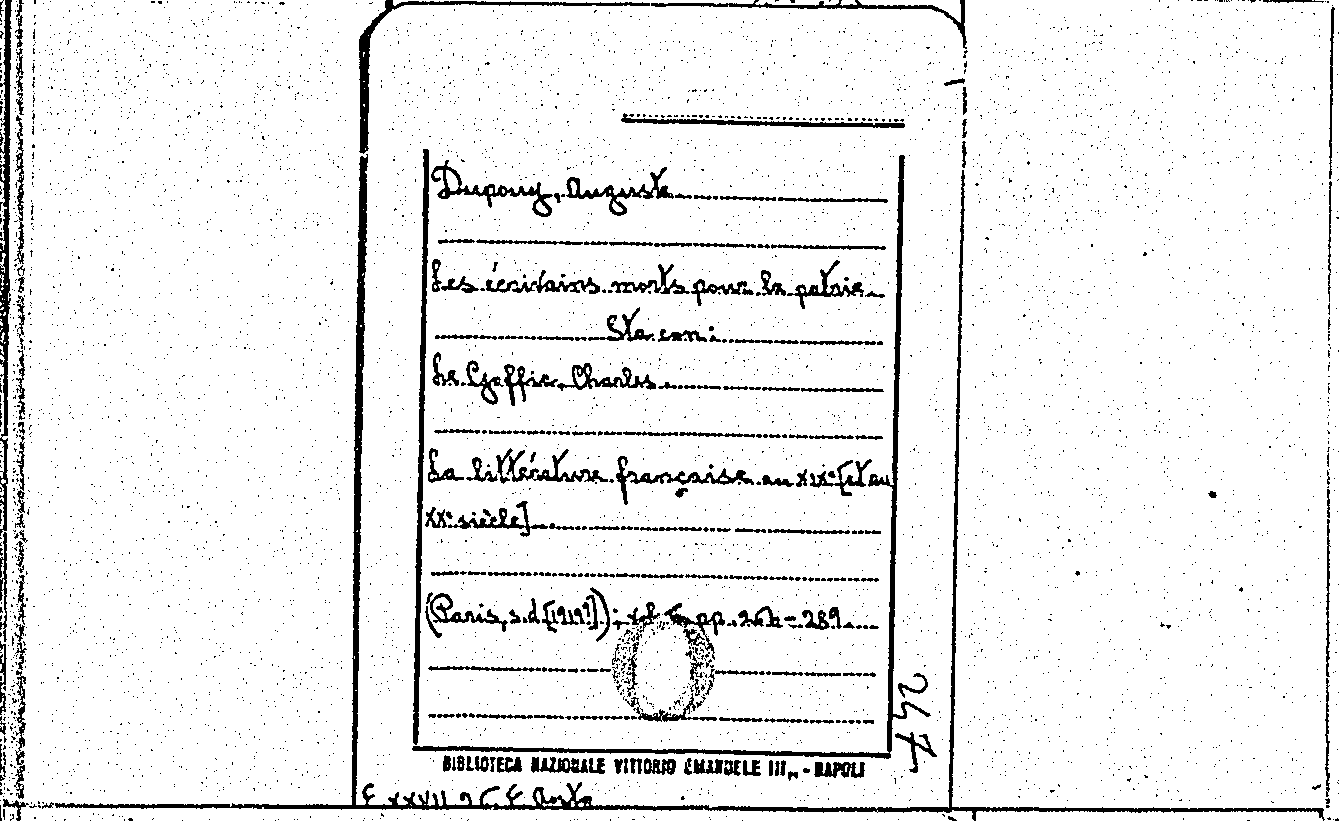 Dupouy, Auguste
Les écrivains morts pour la patrie
Sta con:
Le Goffic, Charles.
La littérature française au XIXe [et au
XXe siècle]
(Paris, s.d. [1919?]); vol. pp. 264-289
BIBLIOTECA NAZIONALE VITTORIO EMANUELE III - NAPOLI